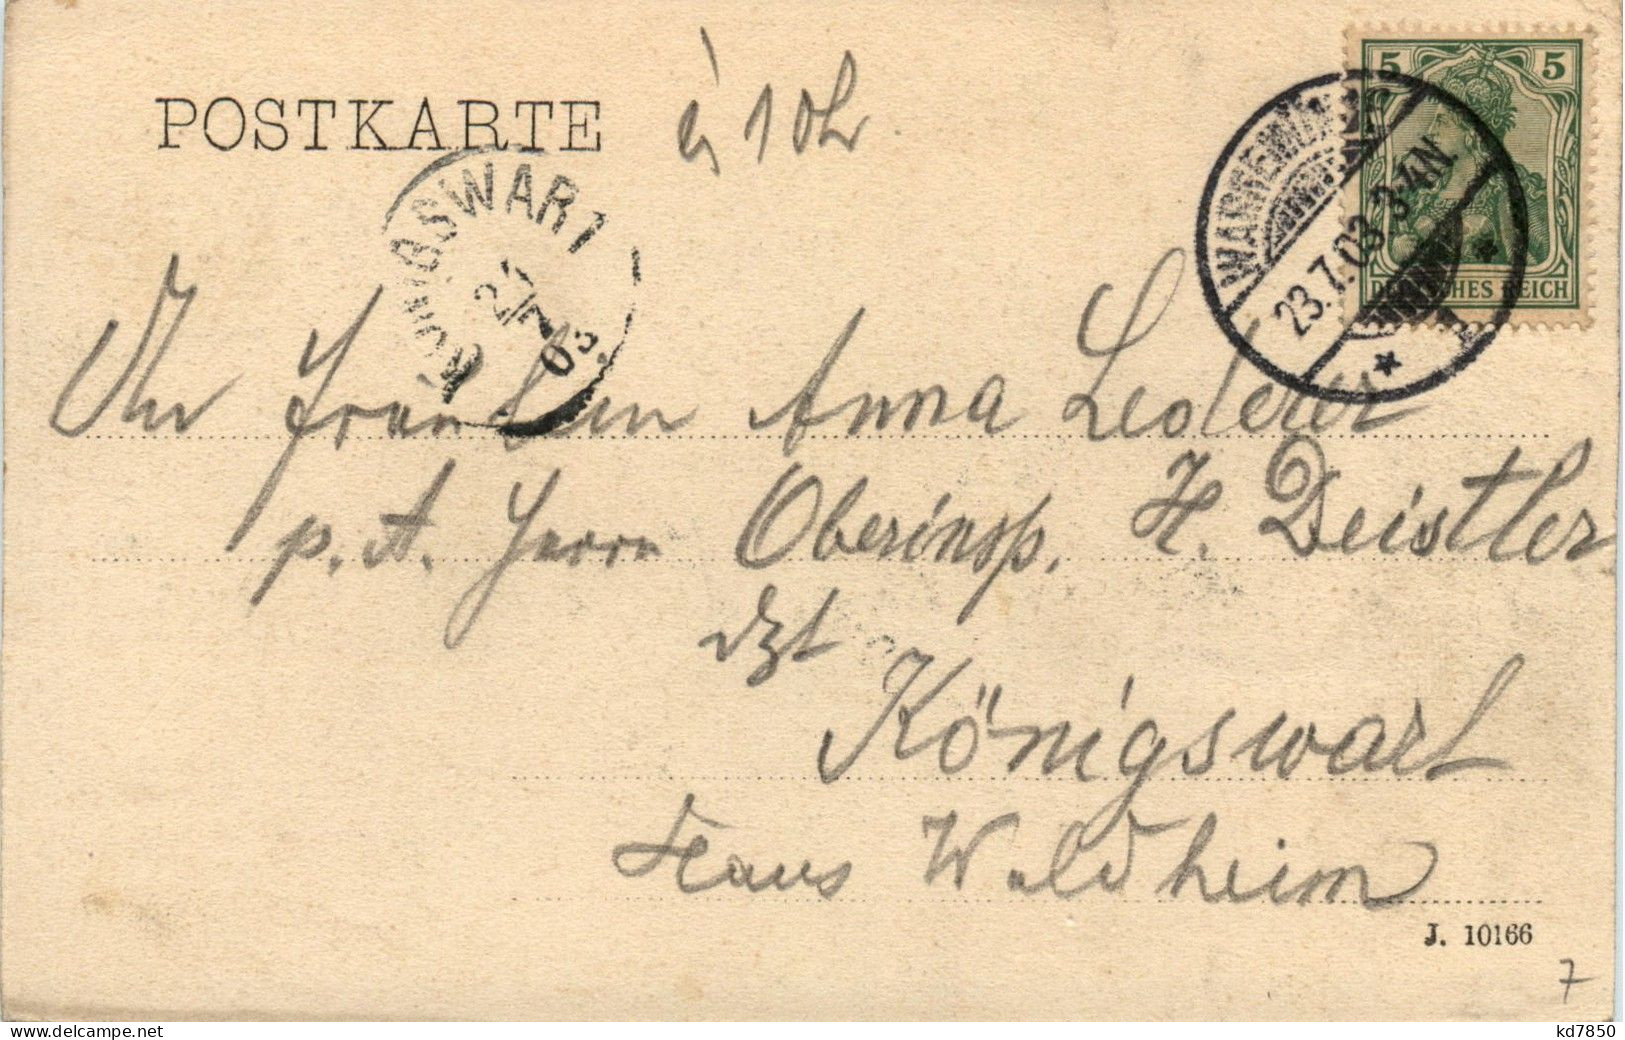 POSTKARTE
1 Uhr.
5 5
DEUTSCHES REICH
WARNEMÜNDE
23.7.03. 3-4N.
KÖNIGSWART
7
03
An Fräulein Anna Lederer
p. A. Herrn Oberinsp. H. Deistler
dzt
Königswart
Haus Waldheim
J. 10166
7
kd7850